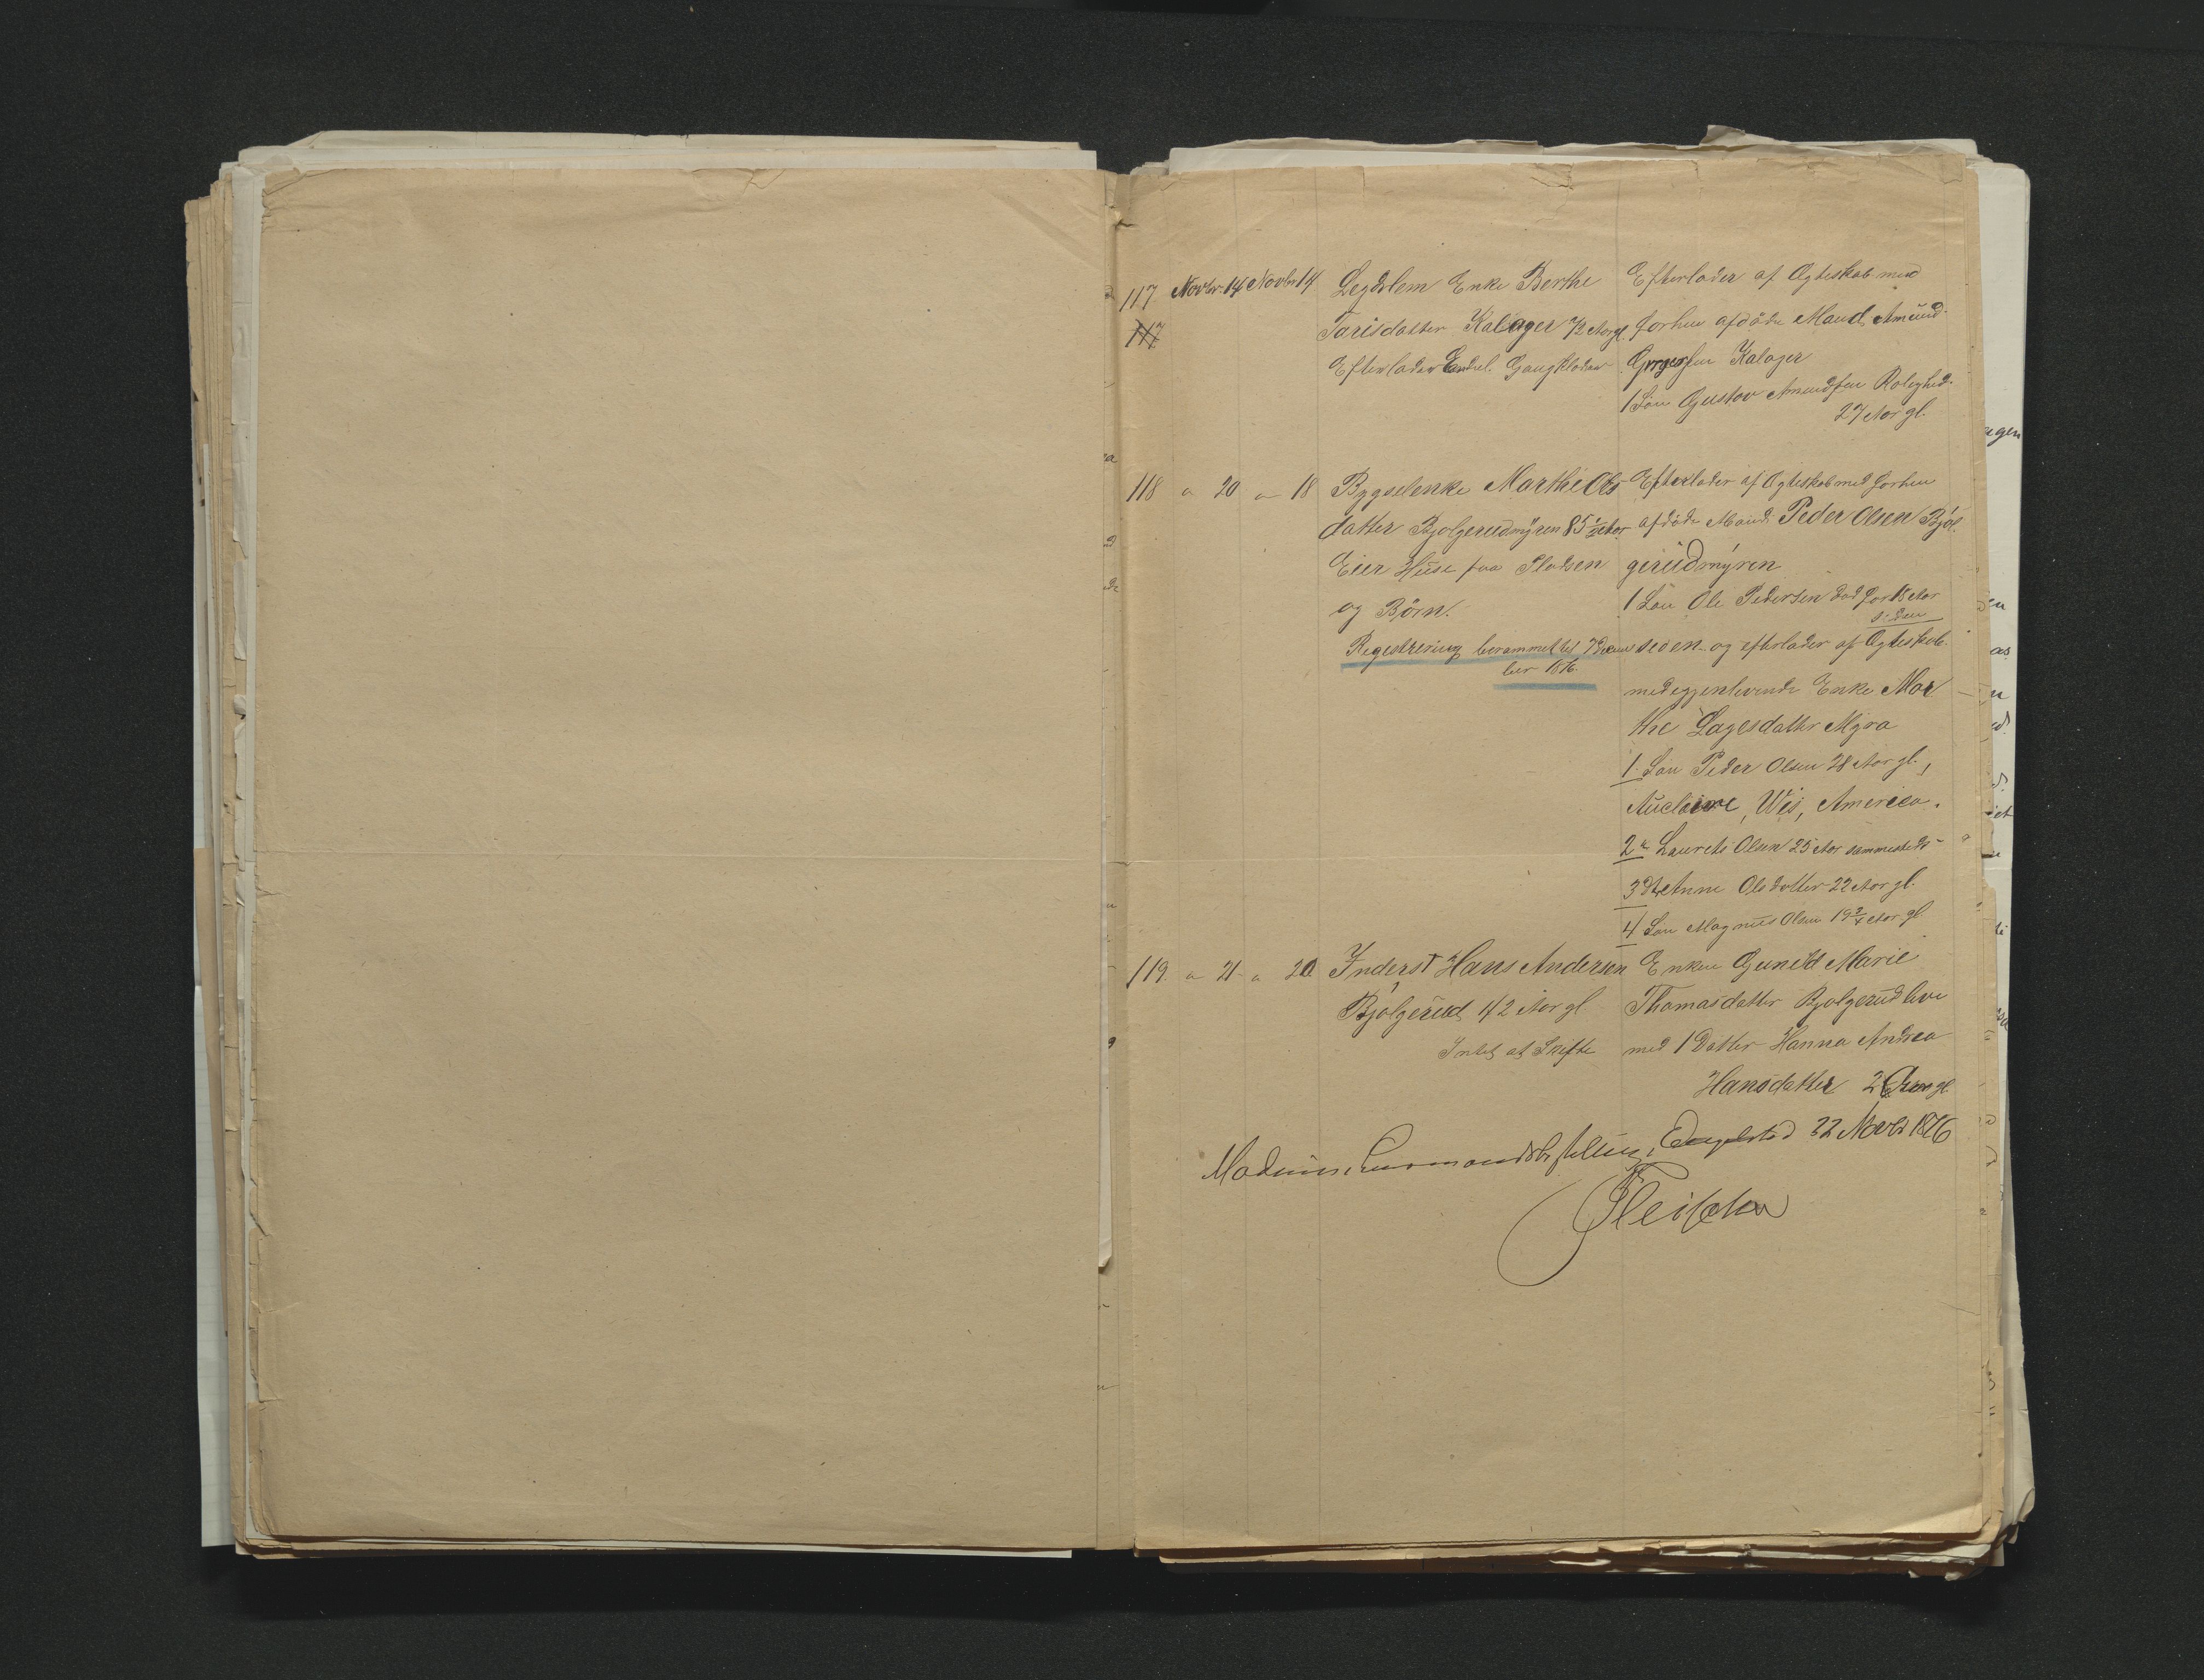 117 Novbr 14 Novbr 14 Legdslem Enke Berthe
117 Tarisdatter Kalager 72 Aar gl.
Efterlader Endel Gangklæder
Efterlader af Ægteskab med
forhen afdöde Mand Amund
Kalager
1 Sön Gustav Amundsen Rolighed
27 Aar gl.
118 " 20 " 18 Bygselenke Marthe Ols
datter Bjolgerudmÿren 85 1/2 Aar
Eier Huse paa Pladsen
og Börn.
Registrering berammet til 7 Decem
ber 1876.
Efterlader af Ægteskab med forhen
afdöde Mand Peder Olsen Bjöl
gerüdmÿren
1 Sön Ole Pedersen död for 18 Aar
siden
seden og efterlader af Ægteskab
med igjenlevende Enke Mar
the Lagesdatter Myra
1. Sön Peder Olsen 28 Aar gl.,
Auclaire, Wis, America.
2 " Laurets Olsen 25 Aar sammesteds
3 Dtr Anne Olsdatter 22 Aar gl.
4 Sön Magnus Olsen 19 3/4 Aar gl
119. " 21 " 20 Inderst Hans Andersen
Bjölgerud 42 Aar gl
Intet at Skifte
Enken Gunild Marie
Thomasdatter Bjolgerud leve
med 1 Datter Hanna Andrea
Hansdatter 2 Aar gl.
Modums Lensmandsbestilling, Engelstad 22 Novbr 1876